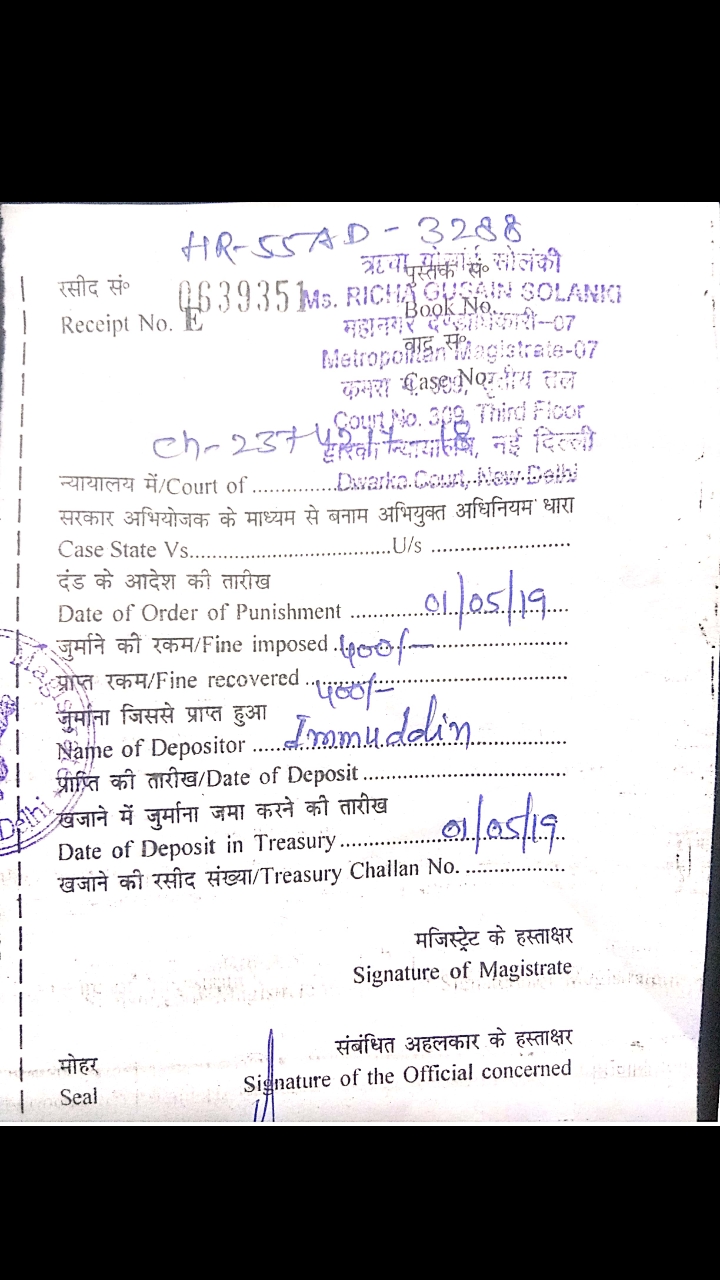 HR-55AD-3288
ऋचा गुसांई सोलंकी
रसीद सं॰ पुस्तक सं॰
0639351 Ms. RICHA GUSAIN SOLANKI
Receipt No. E Book No.
महानगर दण्डाधिकारी-07
वाद सं॰
Metropolitan Magistrate-07
कमरा तृतीय तल
Case No.
Court No. 309, Third Floor
Ch-237
द्वारका न्यायालय, नई दिल्ली
Dwarka Court, New Delhi
न्यायालय में/Court of ................
सरकार अभियोजक के माध्यम से बनाम अभियुक्त अधिनियम धारा
Case State Vs....................................U/s ........................
दंड के आदेश की तारीख
Date of Order of Punishment ............01/05/19...
जुर्माने की रकम/Fine imposed .400/-............................
प्राप्त रकम/Fine recovered ...400/-............................
जुर्माना जिससे प्राप्त हुआ
Name of Depositor .....Immuddin...................
प्राप्ति की तारीख/Date of Deposit ...................................
खजाने में जुर्माना जमा करने की तारीख
Date of Deposit in Treasury..................01/05/19..
खजाने की रसीद संख्या/Treasury Challan No. ..................
मजिस्ट्रेट के हस्ताक्षर
Signature of Magistrate
संबंधित अहलकार के हस्ताक्षर
मोहर
Signature of the Official concerned
Seal
Delhi